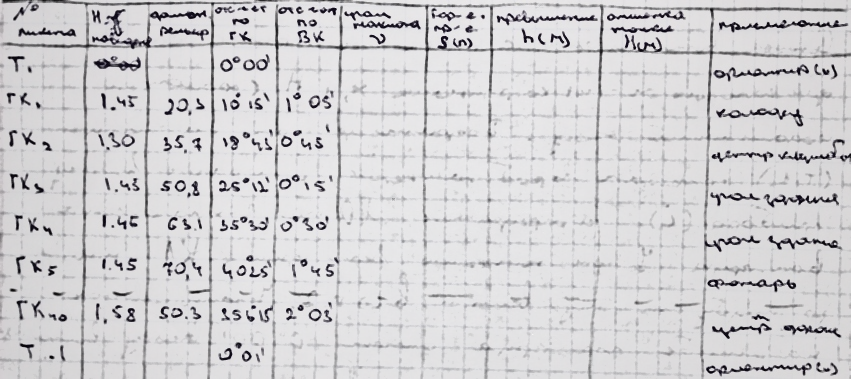 № пикета отсчет по ГК отсчет по ВК угол наклона ν превышение h(м) отметка точки H(м) примечание
Т₁ 0°00' 0°00' ориентир(о)
ГК₁ 1.45 20,3 10°15' 1°05' колодец
ГК₂ 1.30 35,7 18°43' 0°45' центр
ГК₃ 1.45 50,8 25°12' 0°15' угол здания
ГК₄ 1.45 63.1 35°30' 0°30' угол здания
ГК₅ 1.45 70,4 40°25' 1°45' фонарь
ГК₄₀ 1,58 50.3 356°15' 2°03' центр
Т.1 0°01' ориентир(о)